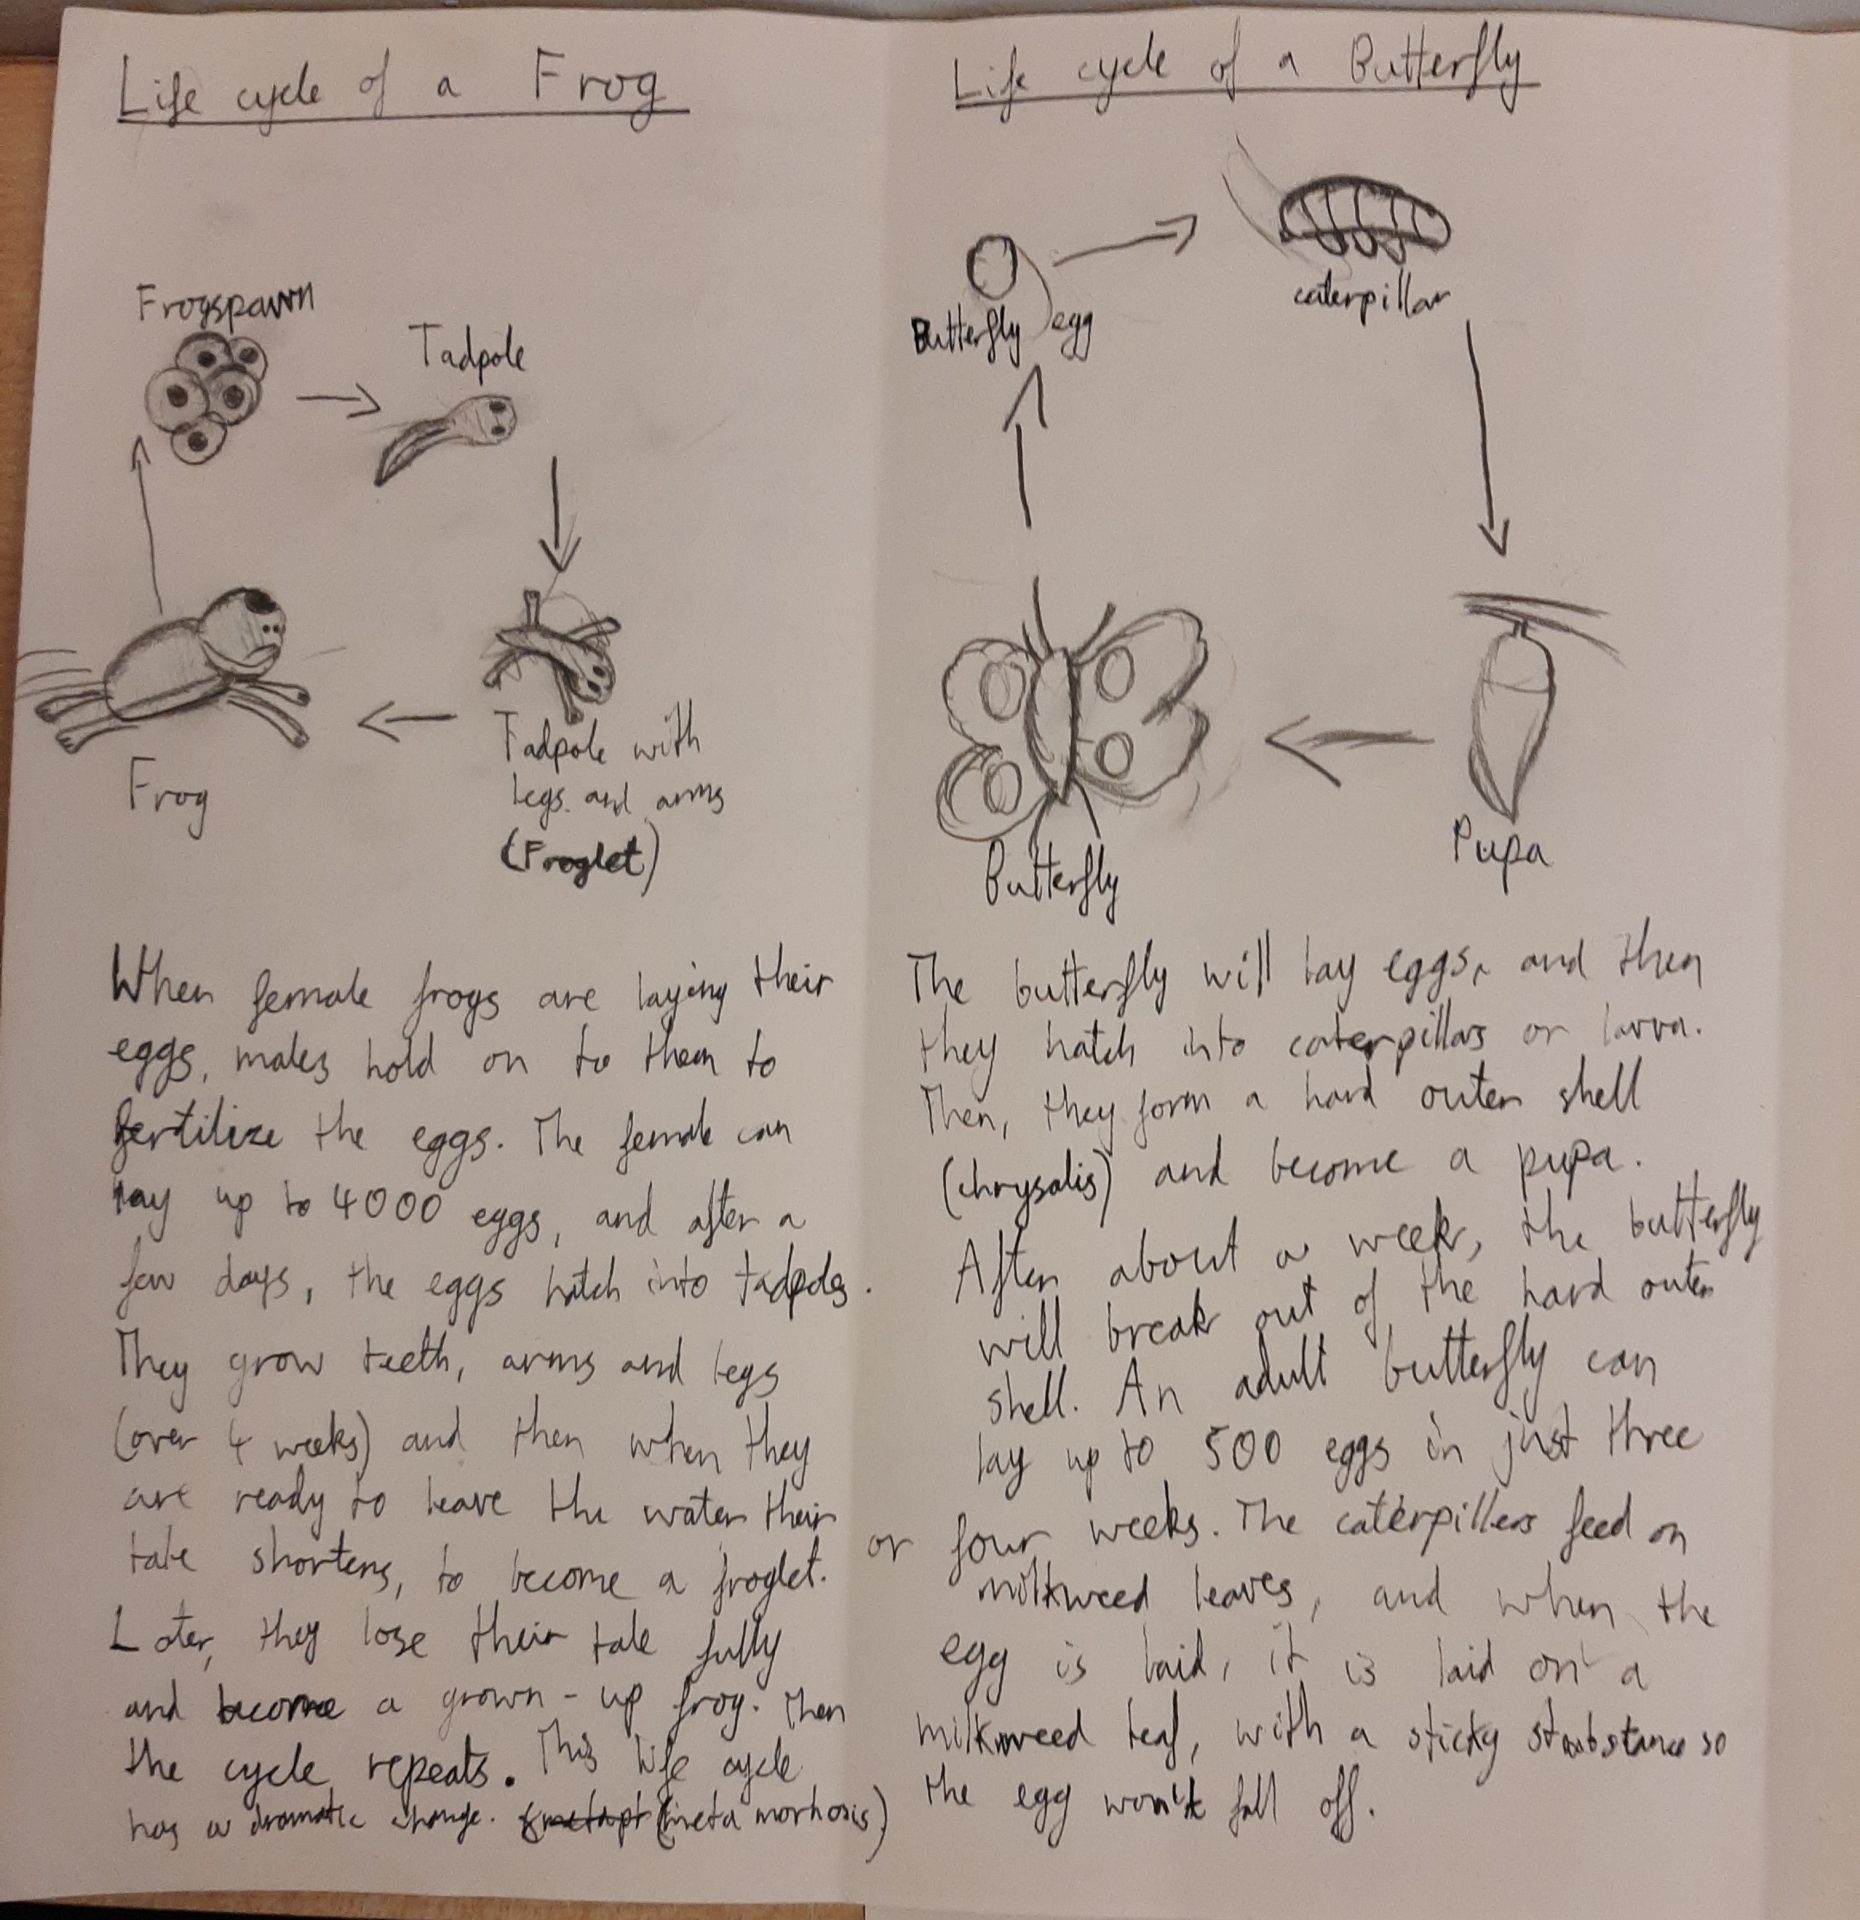 Life cycle of a Frog
Frogspawn
Tadpole
Tadpole with
legs and arms
(Froglet)
Frog
When female frogs are laying their
eggs, males hold on to them to
fertilize the eggs. The female can
lay up to 4000 eggs, and after a
few days, the eggs hatch into tadpoles.
They grow teeth, arms and legs
(over 4 weeks) and then when they
are ready to leave the water their
tale shortens, to become a froglet.
Later, they lose their tale fully
and become a grown-up frog. Then
the cycle repeats. This life cycle
has a dramatic change. (meta morhosis)
Life cycle of a Butterfly
Butterfly egg
caterpillar
Pupa
Butterfly
The butterfly will lay eggs, and then
they hatch into caterpillars or larva.
Then, they form a hard outer shell
(chrysalis) and become a pupa.
After about a week, the butterfly
will break out of the hard outer
shell. An adult butterfly can
lay up to 500 eggs in just three
or four weeks. The caterpillers feed on
milkweed leaves, and when the
egg is laid, it is laid on a
milkweed leaf, with a sticky substance so
the egg won't fall off.